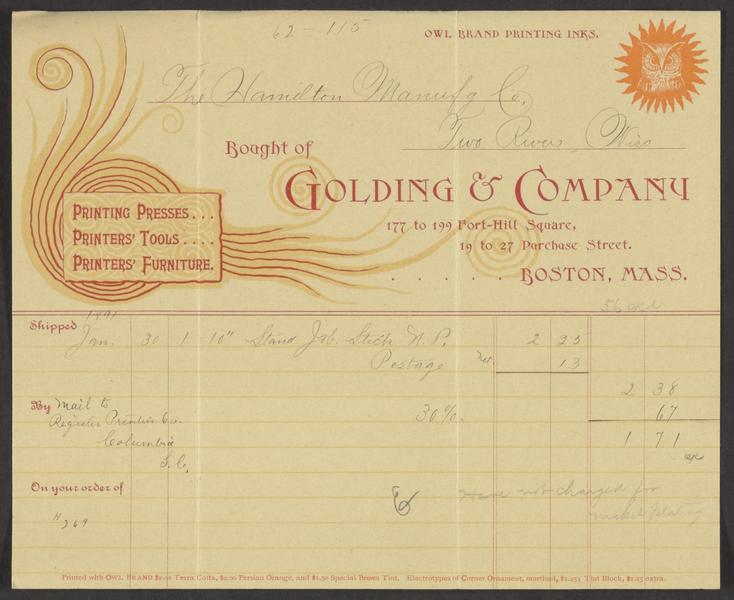 62-115
OWL BRAND PRINTING INKS.
The Hamilton Manuf'g Co,
Two Rivers, Wisc
Bought of
GOLDING & COMPANY
177 to 199 Fort-Hill Square,
19 to 27 Purchase Street.
BOSTON, MASS.
PRINTING PRESSES...
PRINTERS' TOOLS....
PRINTERS' FURNITURE.
1891
Shipped
Jan. 30 1 - 10" Stand Job. Stick N. P. 2 25
Postage Net. 13
2 38
By Mail to 30%. 67
Register Printing Co. 1 71
Columbia
S. C.
On your order of
Have not charged for
nickel plating
# 269
Printed with OWL BRAND $2.00 Terra Cotta, $2.00 Persian Orange, and $1.50 Special Brown Tint. Electrotypes of Corner Ornament, mortised, $1.25; Tint Block, $1.25 extra.